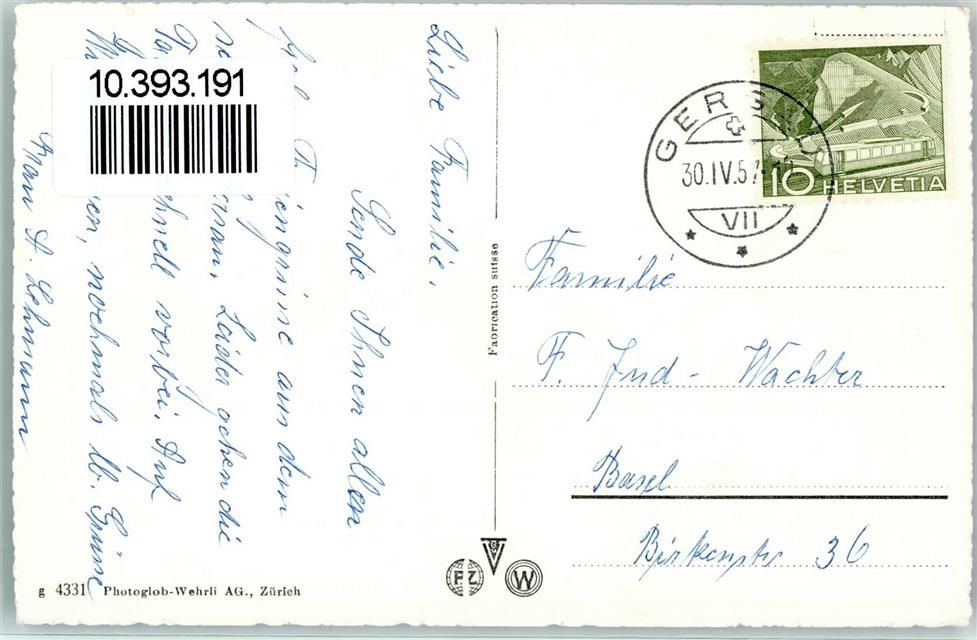 10.393.191
Liebe Familie.
Sende Ihnen allen
aus dem
Leider gehen die
vorbei. Auf
nochmals lb. Grüsse
A. Lehmann
Fabrication suisse
GERSAU
30.IV.57
VII
10 HELVETIA
Familie
F. Jud - Wachter
Basel
Birkenstr 36
FZ
W
g 4331 Photoglob-Wehrli AG., Zürich